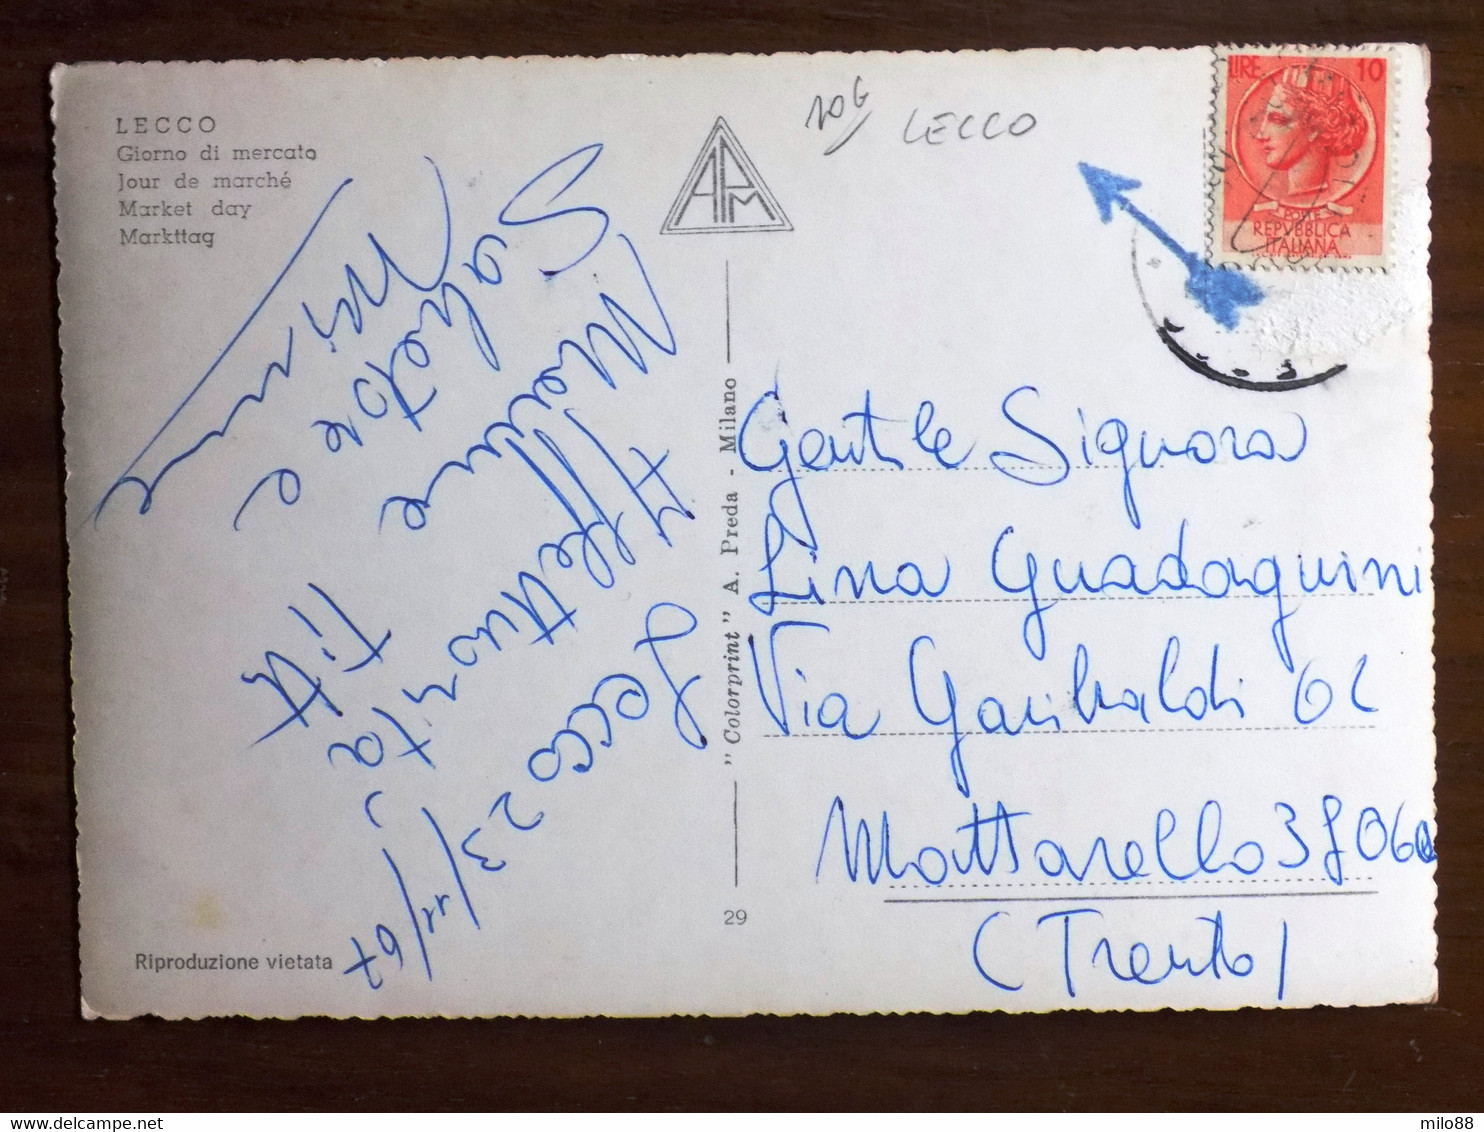 LECCO
Giorno di mercato
Jour de marché
Market day
Markttag
10 €
LECCO
APM
LIRE 10
POSTE
REPVBBLICA
ITALIANA
Lecco 23/11/67
Affettuosità,
Titti
Mailune
Salvatore e
Gentile Signora
Lina Guadagnini
Via Garibaldi 62
Mattarello 38060
(Trento)
"Colorprint" A. Preda - Milano
29
Riproduzione vietata
milo88